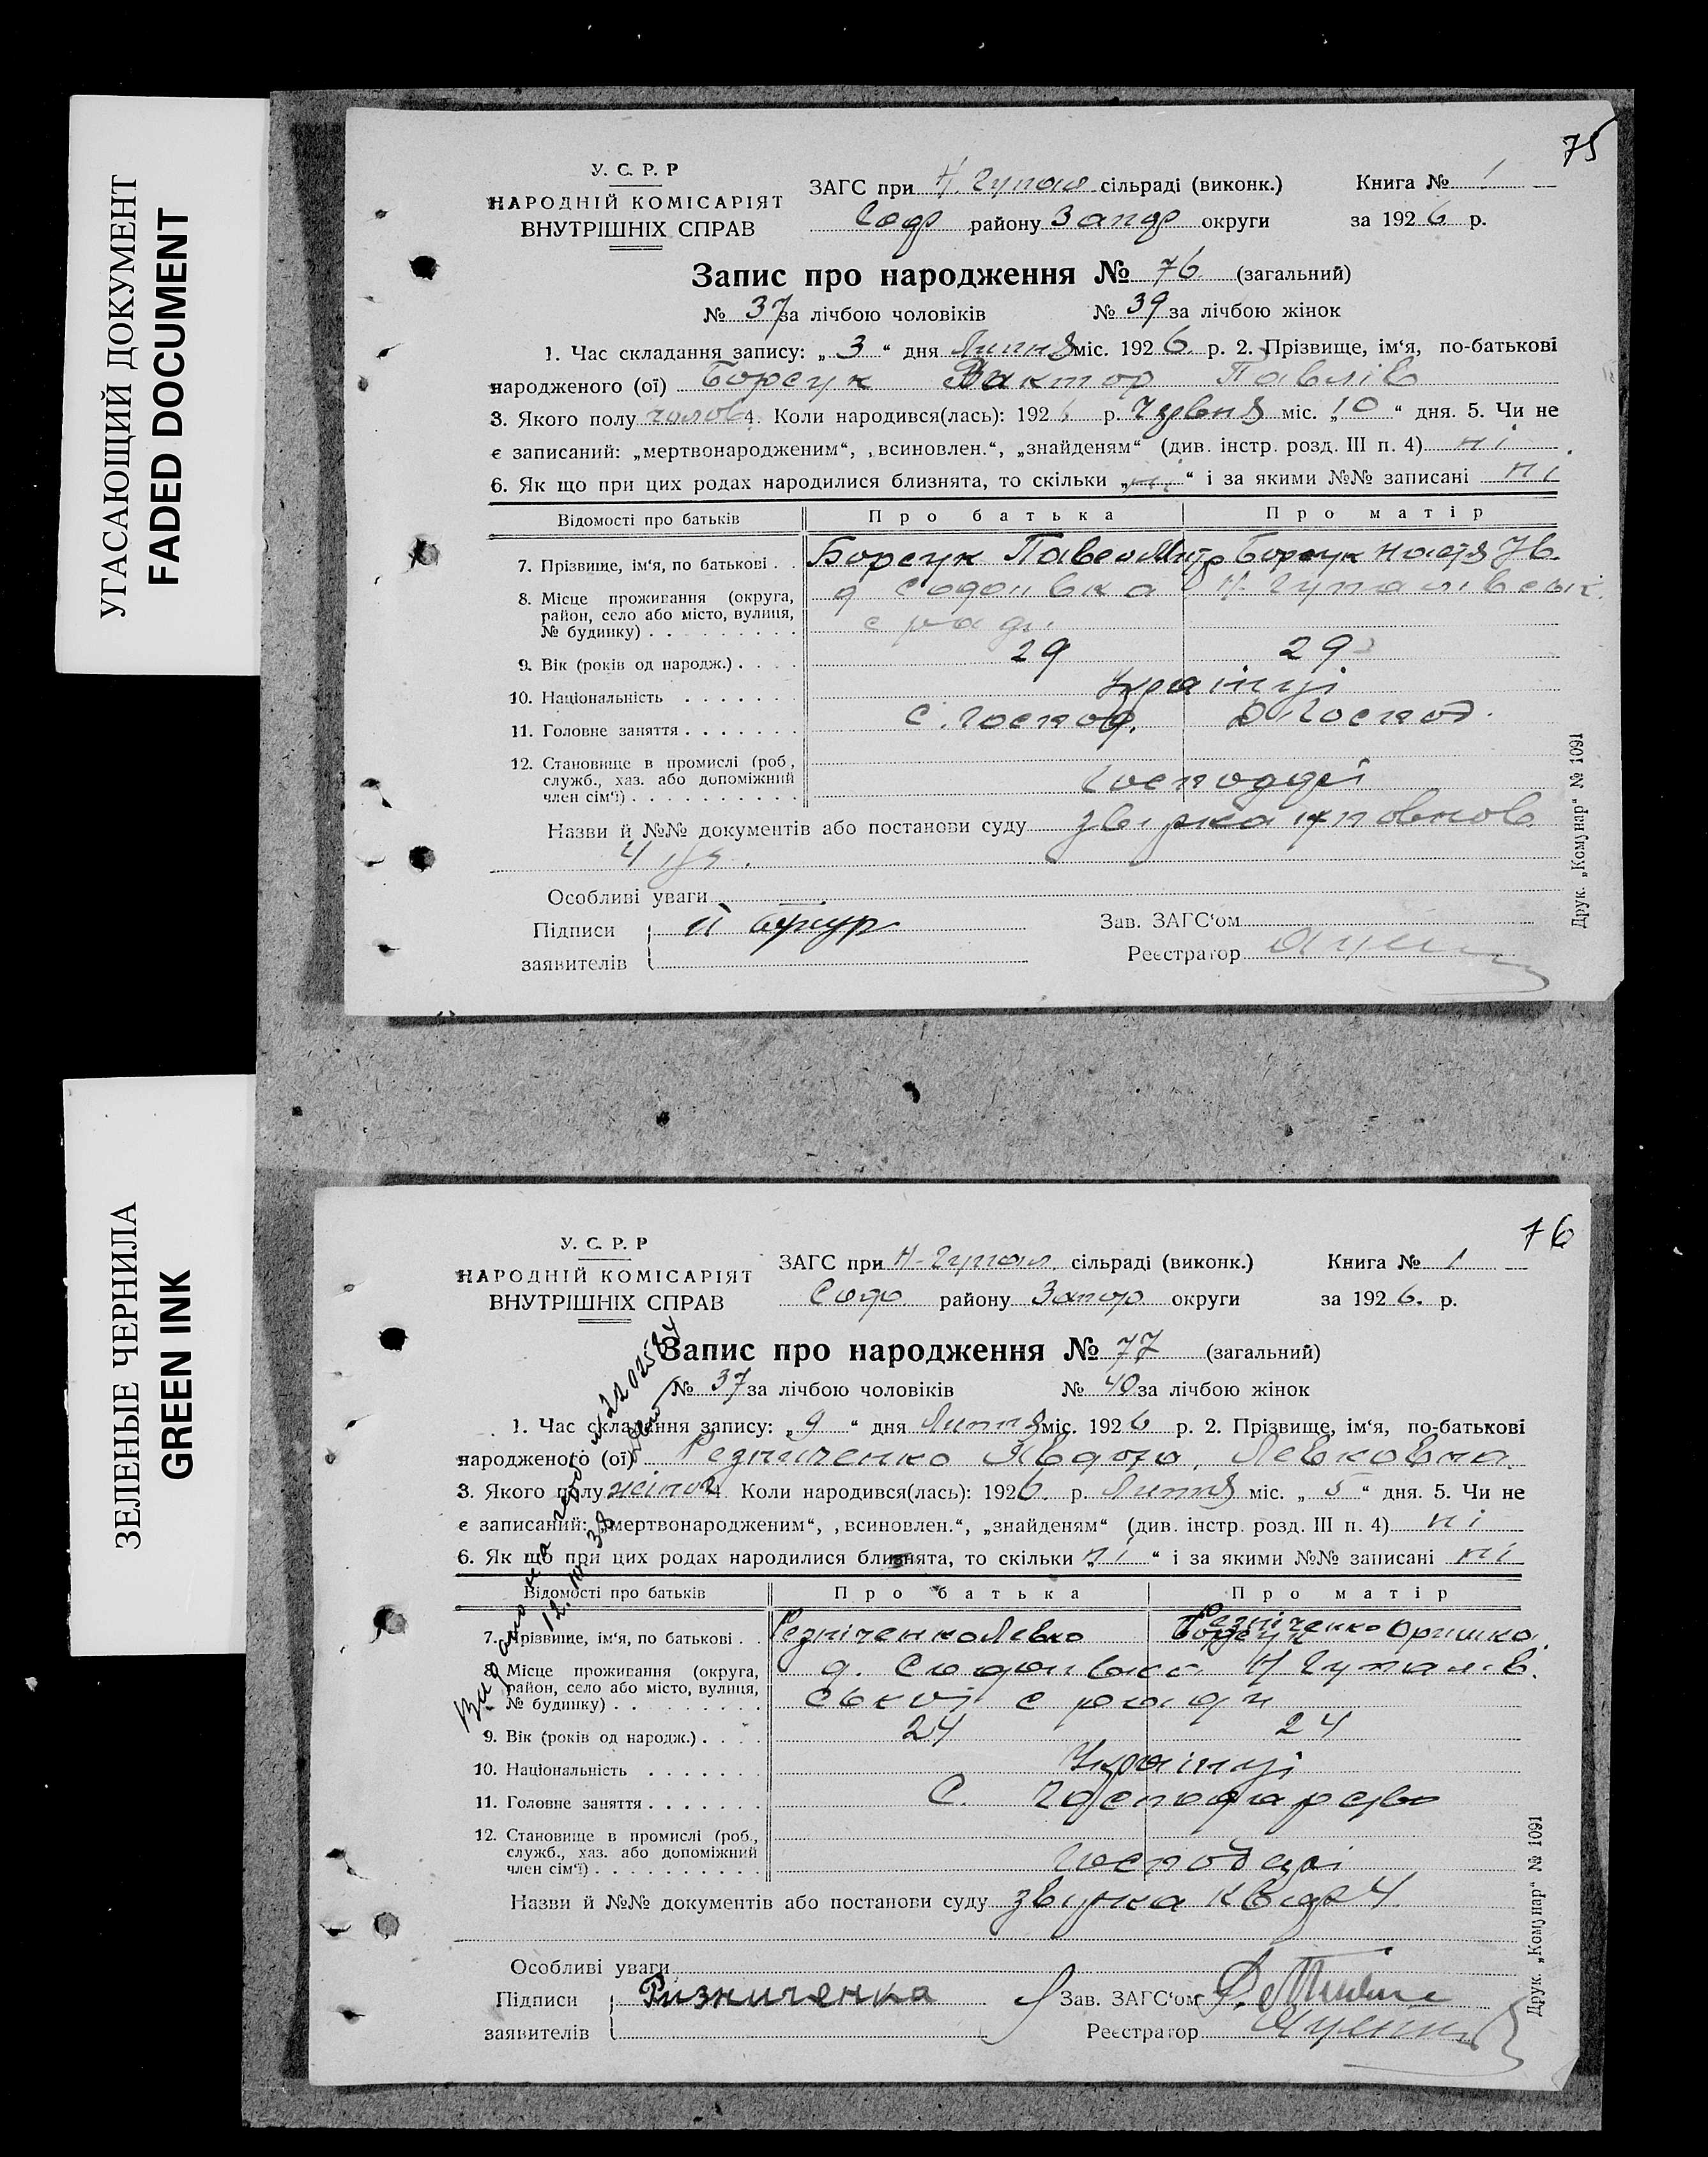 УГАСАЮЩИЙ ДОКУМЕНТ
FADED DOCUMENT
75
У. С. Р. Р
НАРОДНІЙ КОМІСАРІЯТ
ВНУТРІШНІХ СПРАВ
ЗАГС при Н. Гупал сільраді (виконк.) Книга № 1
Соф району Запор округи за 1926 р.
Запис про народження № 76 (загальний)
№ 37 за лічбою чоловіків № 39 за лічбою жінок
1. Час складання запису: „ 3 “ дня Липня міс. 1926 р. 2. Прізвище, ім‘я, по-батькові
народженого (ої) Борсук Віктор Павлів
3. Якого полу чолов 4. Коли народився(лась): 192 р. Червня міс. „ 10 “ дня. 5. Чи не
є записаний: „мертвонародженим“, „всиновлен.“, „знайденям“ (див. інстр. розд. III п. 4) ні
6. Як що при цих родах народилися близнята, то скільки „ ні “ і за якими №№ записані ні
Відомості про батьків Про батька Про матір
7. Прізвище, ім‘я, по батькові . . Борсук Павло Митр Борсук Настя
8. Місце проживання (округа, район, село або місто, вулиця, № будинку) . . . . . . . . . Н. Гупалівськ.
с ради
9. Вік (років од народж.) . . . . 29 29
10. Національність . . . . . . Українці
11. Головне заняття . . . . . . . С. Господ. Д. Господ.
12. Становище в промислі (роб., служб., хаз. або допоміжний член сім‘ї) . . . . . . . . . . Господарі
Назви й №№ документів або постанови суду
Особливі уваги
Підписи заявителів
Зав. ЗАГС‘ом
Реєстратор
Друк. „Комунар“ № 1091
ЗЕЛЕНЫЕ ЧЕРНИЛА
GREEN INK
76
У. С. Р. Р
НАРОДНІЙ КОМІСАРІЯТ
ВНУТРІШНІХ СПРАВ
ЗАГС при Н-Гупал. сільраді (виконк.) Книга № 1
Соф. району Запор. округи за 1926. р.
Запис про народження № 77 (загальний)
№ 37 за лічбою чоловіків № 40 за лічбою жінок
1. Час складання запису: „ 9 “ дня Липня міс. 1926 р. 2. Прізвище, ім‘я, по-батькові
народженого (ої) Резниченко Явдоха, Левковна.
3. Якого полу жіноч 4. Коли народився(лась): 1926. р. Липня міс. „ 5 “ дня. 5. Чи не
є записаний: „мертвонародженим“, „всиновлен.“, „знайденям“ (див. інстр. розд. III п. 4) ні
6. Як що при цих родах народилися близнята, то скільки „ ні “ і за якими №№ записані ні
Відомості про батьків Про батька Про матір
7. Прізвище, ім‘я, по батькові . . Резніченко Левко Резніченко Оришка.
8. Місце проживання (округа, район, село або місто, вулиця, № будинку) . . . . . . . . . Н Гупалів.
ської с ради
9. Вік (років од народж.) . . . . 24 24
10. Національність . . . . . . Українці
11. Головне заняття . . . . . . . С. Господарство
12. Становище в промислі (роб., служб., хаз. або допоміжний член сім‘ї) . . . . . . . . . . Господарі
Назви й №№ документів або постанови суду
Особливі уваги
Підписи заявителів Ризниченка
Зав. ЗАГС‘ом
Реєстратор
Друк. „Комунар“ № 1091